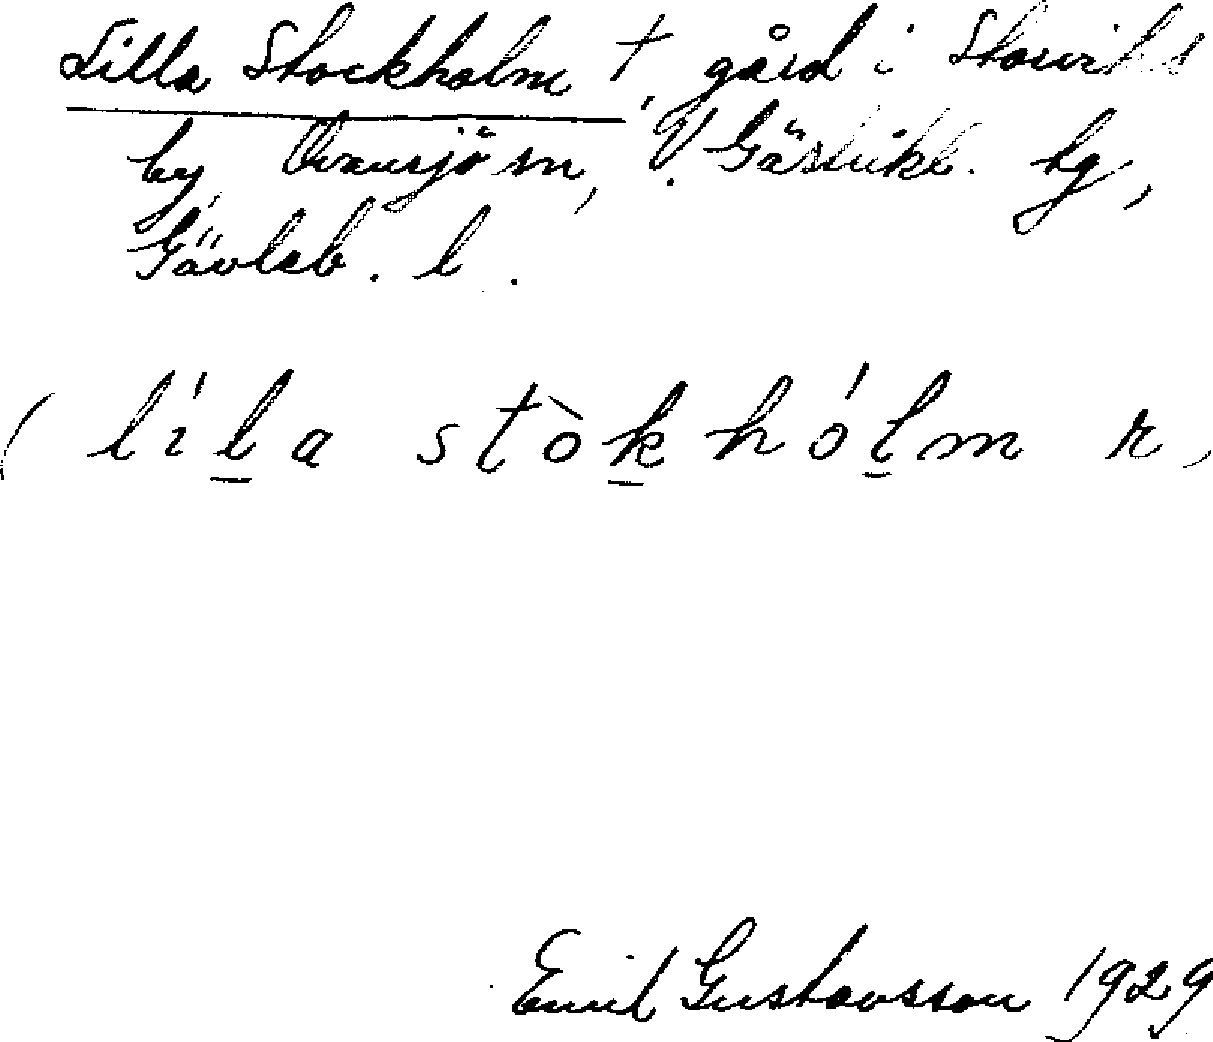 Lilla Stockholm †, gård i Storviks
by, Ovansjö sn, V. Gästrikl. hg,
Gävleb. l.
( líla stòkhólm r,
Emil Gustavsson 1929